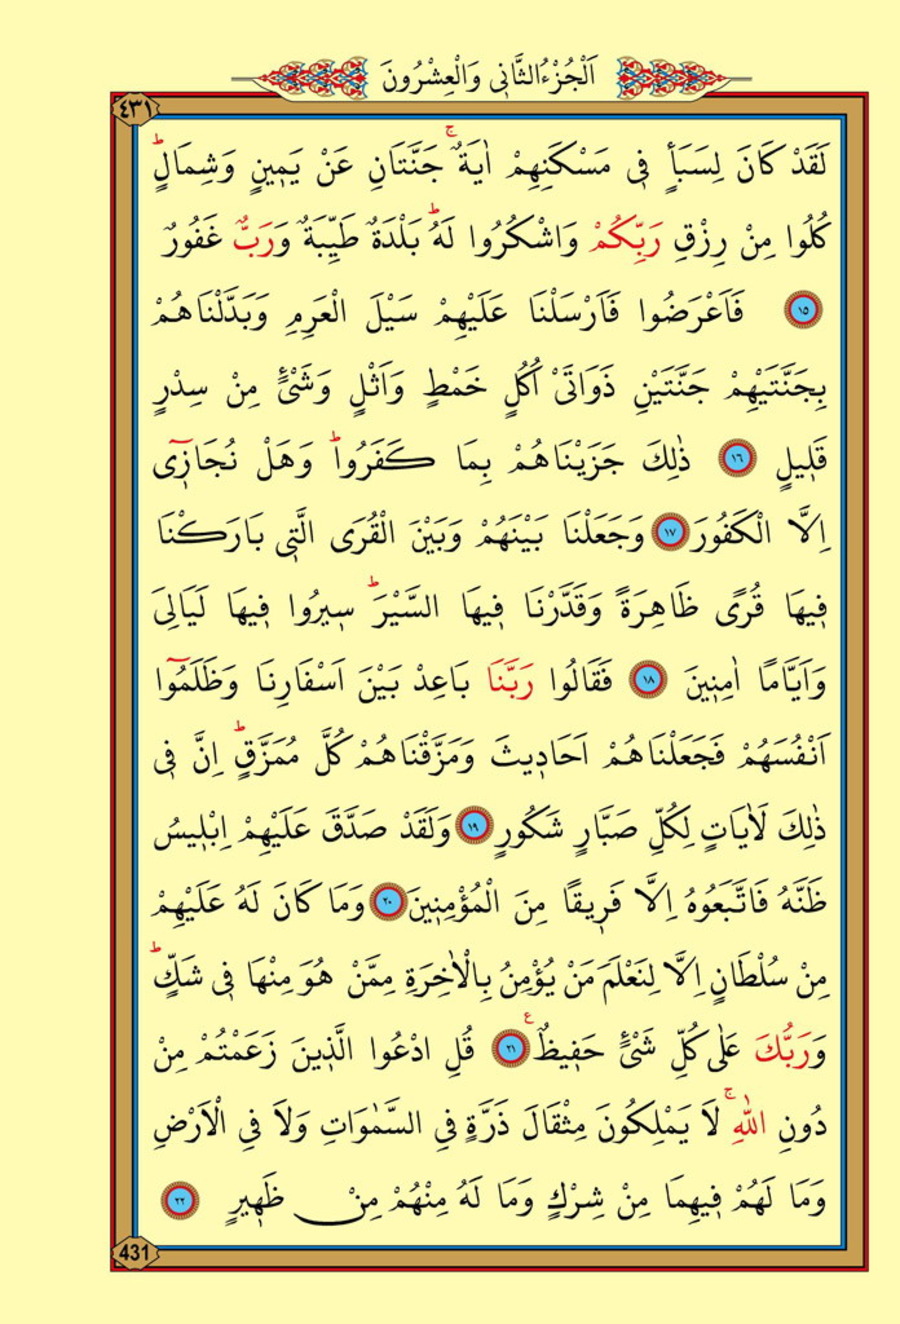 اَلْجُزْءُ الثَّانٖى وَالْعِشْرُونَ
٤٣١
لَقَدْ كَانَ لِسَبَأٍ فٖى مَسْكَنِهِمْ اٰيَةٌۚ جَنَّتَانِ عَنْ يَمٖينٍ وَشِمَالٍؕ
كُلُوا مِنْ رِزْقِ رَبِّكُمْ وَاشْكُرُوا لَهُؕ بَلْدَةٌ طَيِّبَةٌ وَرَبٌّ غَفُورٌ
﴿١٥﴾ فَاَعْرَضُوا فَاَرْسَلْنَا عَلَيْهِمْ سَيْلَ الْعَرِمِ وَبَدَّلْنَاهُمْ
بِجَنَّتَيْهِمْ جَنَّتَيْنِ ذَوَاتَىْ اُكُلٍ خَمْطٍ وَاَثْلٍ وَشَىْءٍ مِنْ سِدْرٍ
قَلٖيلٍ ﴿١٦﴾ ذٰلِكَ جَزَيْنَاهُمْ بِمَا كَفَرُواؕ وَهَلْ نُجَازٖٓى
اِلَّا الْكَفُورَ ﴿١٧﴾ وَجَعَلْنَا بَيْنَهُمْ وَبَيْنَ الْقُرَى الَّتٖى بَارَكْنَا
فٖيهَا قُرًى ظَاهِرَةً وَقَدَّرْنَا فٖيهَا السَّيْرَؕ سٖيرُوا فٖيهَا لَيَالِىَ
وَاَيَّامًا اٰمِنٖينَ ﴿١٨﴾ فَقَالُوا رَبَّنَا بَاعِدْ بَيْنَ اَسْفَارِنَا وَظَلَمُٓوا
اَنْفُسَهُمْ فَجَعَلْنَاهُمْ اَحَادٖيثَ وَمَزَّقْنَاهُمْ كُلَّ مُمَزَّقٍؕ اِنَّ فٖى
ذٰلِكَ لَاٰيَاتٍ لِكُلِّ صَبَّارٍ شَكُورٍ ﴿١٩﴾ وَلَقَدْ صَدَّقَ عَلَيْهِمْ اِبْلٖيسُ
ظَنَّهُ فَاتَّبَعُوهُ اِلَّا فَرٖيقًا مِنَ الْمُؤْمِنٖينَ ﴿٢٠﴾ وَمَا كَانَ لَهُ عَلَيْهِمْ
مِنْ سُلْطَانٍ اِلَّا لِنَعْلَمَ مَنْ يُؤْمِنُ بِالْاٰخِرَةِ مِمَّنْ هُوَ مِنْهَا فٖى شَكٍّؕ
وَرَبُّكَ عَلٰى كُلِّ شَىْءٍ حَفٖيظٌ ﴿٢١﴾ ع قُلِ ادْعُوا الَّذٖينَ زَعَمْتُمْ مِنْ
دُونِ اللّٰهِۚ لَا يَمْلِكُونَ مِثْقَالَ ذَرَّةٍ فِى السَّمٰوَاتِ وَلَا فِى الْاَرْضِ
وَمَا لَهُمْ فٖيهِمَا مِنْ شِرْكٍ وَمَا لَهُ مِنْهُمْ مِنْ ظَهٖيرٍ ﴿٢٢﴾
431